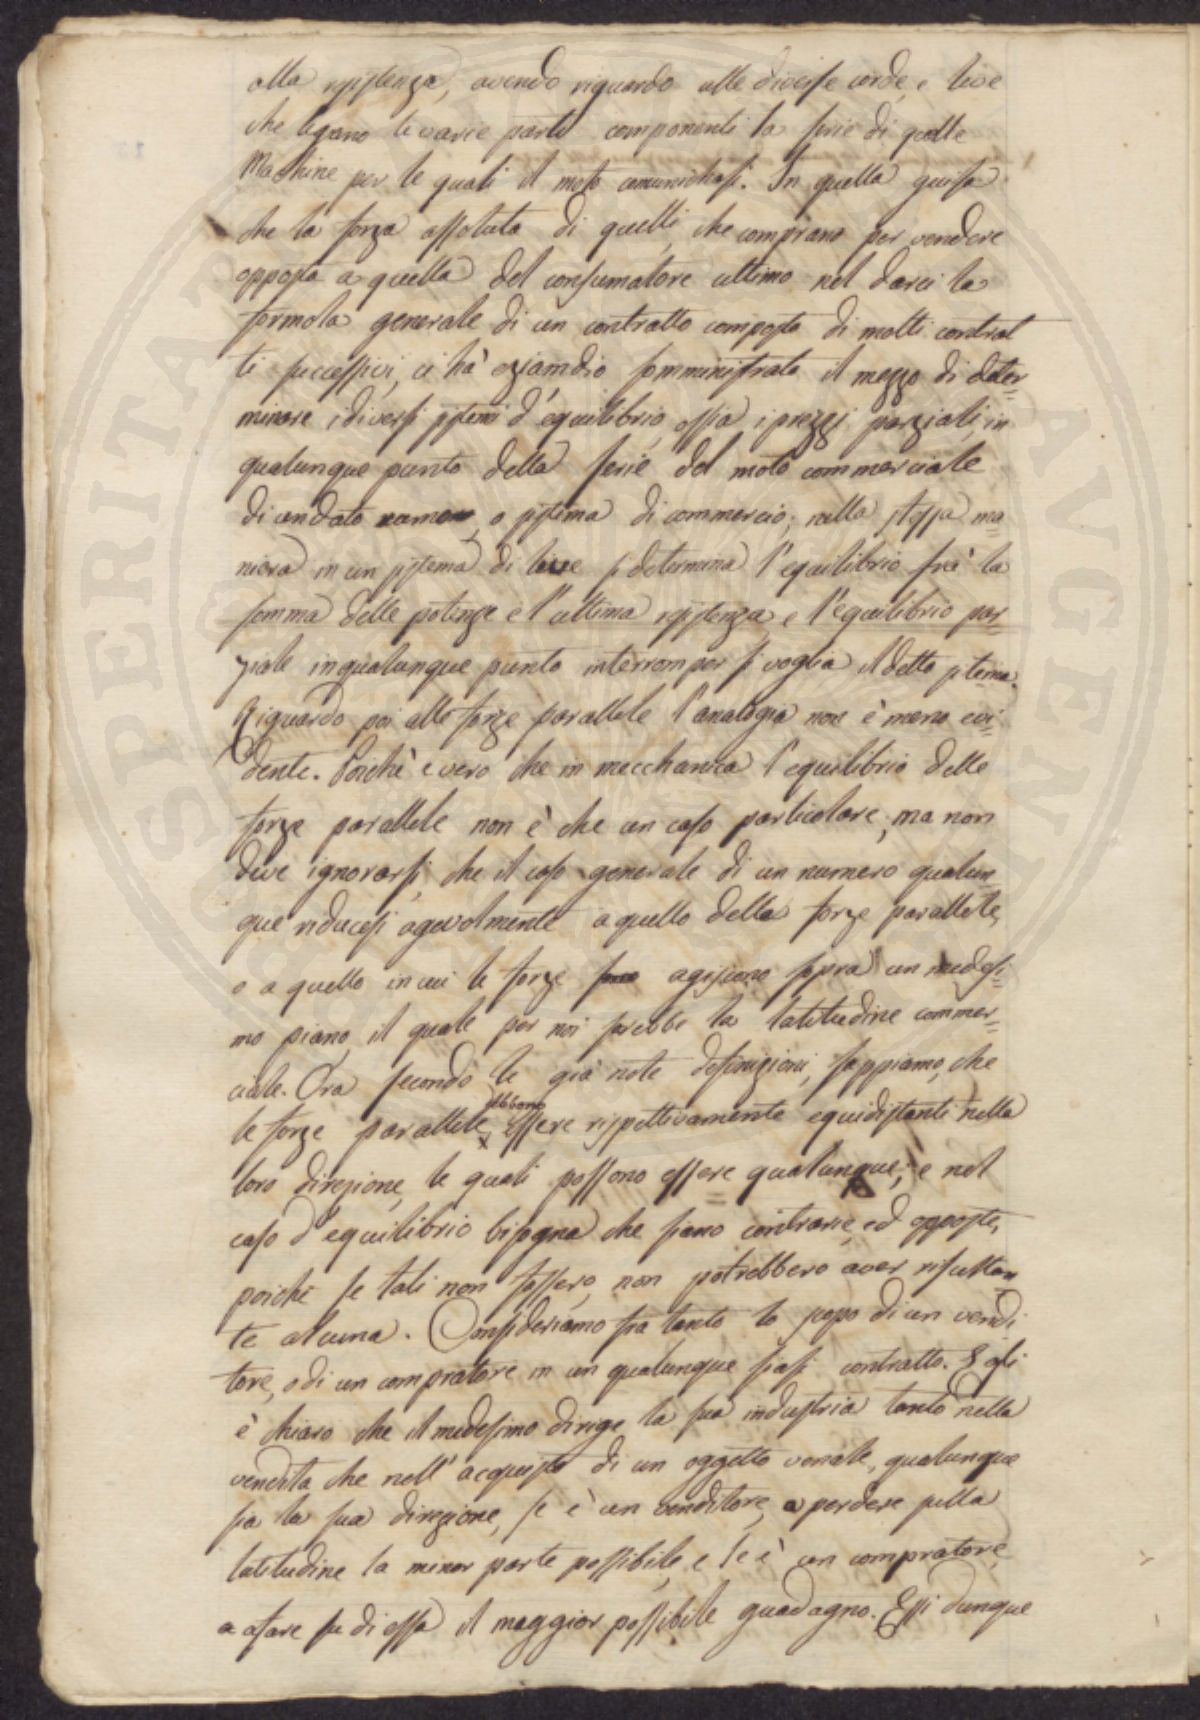 alla resistenza, avendo riguardo alle diverse corde, e leve
che legano le varie parti componenti la serie di quelle
Macchine per le quali il moto comunichasi. In quella guisa
che la forza assoluta di quelli, che comprano per vendere
opposta a quella del consumatore ultimo nel darci la
formola generale di un contratto composto di molti contrat
ti successivi, ci hà eziamdio somministrato il mezzo di deter=
minare i diversi sistemi d'equilibrio, ossia i prezzi parziali, in
qualunque punto della serie del moto commerciale
di un dato ramo, o sistema di commercio; nella stessa ma=
niera in un sistema di leve si determina l'equilibrio frà la
somma delle potenze e l'ultima resistenza, e l'equilibrio par
ziale in qualunque punto interromper si voglia il detto sistema.
Riguardo poi alle forze parallele l'analogia non è meno evi=
dente. Poichè è vero che in mecchanica l'equilibrio delle
forze parallele non è che un caso particolare, ma non
deve ignorarsi, che il caso generale di un numero qualun=
que riducesi agevolmente a quello delle forze parallele,
o a quello in cui le forze agiscono sopra un medesi=
mo piano, il quale per noi sarebbe la latitudine commer=
ciale. Ora secondo le già note definizioni, sappiamo, che
le forze parallele debbono essere rispettivamente equidistanti nella
loro direzione, le quali possono essere qualunque; e nel
caso d'equilibrio bisogna che siano contrarie, ed opposte,
poichè se tali non fossero, non potrebbero aver risultan
te alcuna. Consideriamo fra tanto lo scopo di un vendi
tore, o di un compratore in un qualunque siasi contratto. Egli
è chiaro che il medesimo dirige la sua industria tanto nella
vendita, che nell'acquisto di un oggetto venale, qualunque
sia la sua direzione, se è un venditore, a perdere sulla
latitudine la minor parte possibile, e se è un compratore,
a fare su di essa il maggior possibile guadagno. Essi dunque
SPERITAT
AVGEN